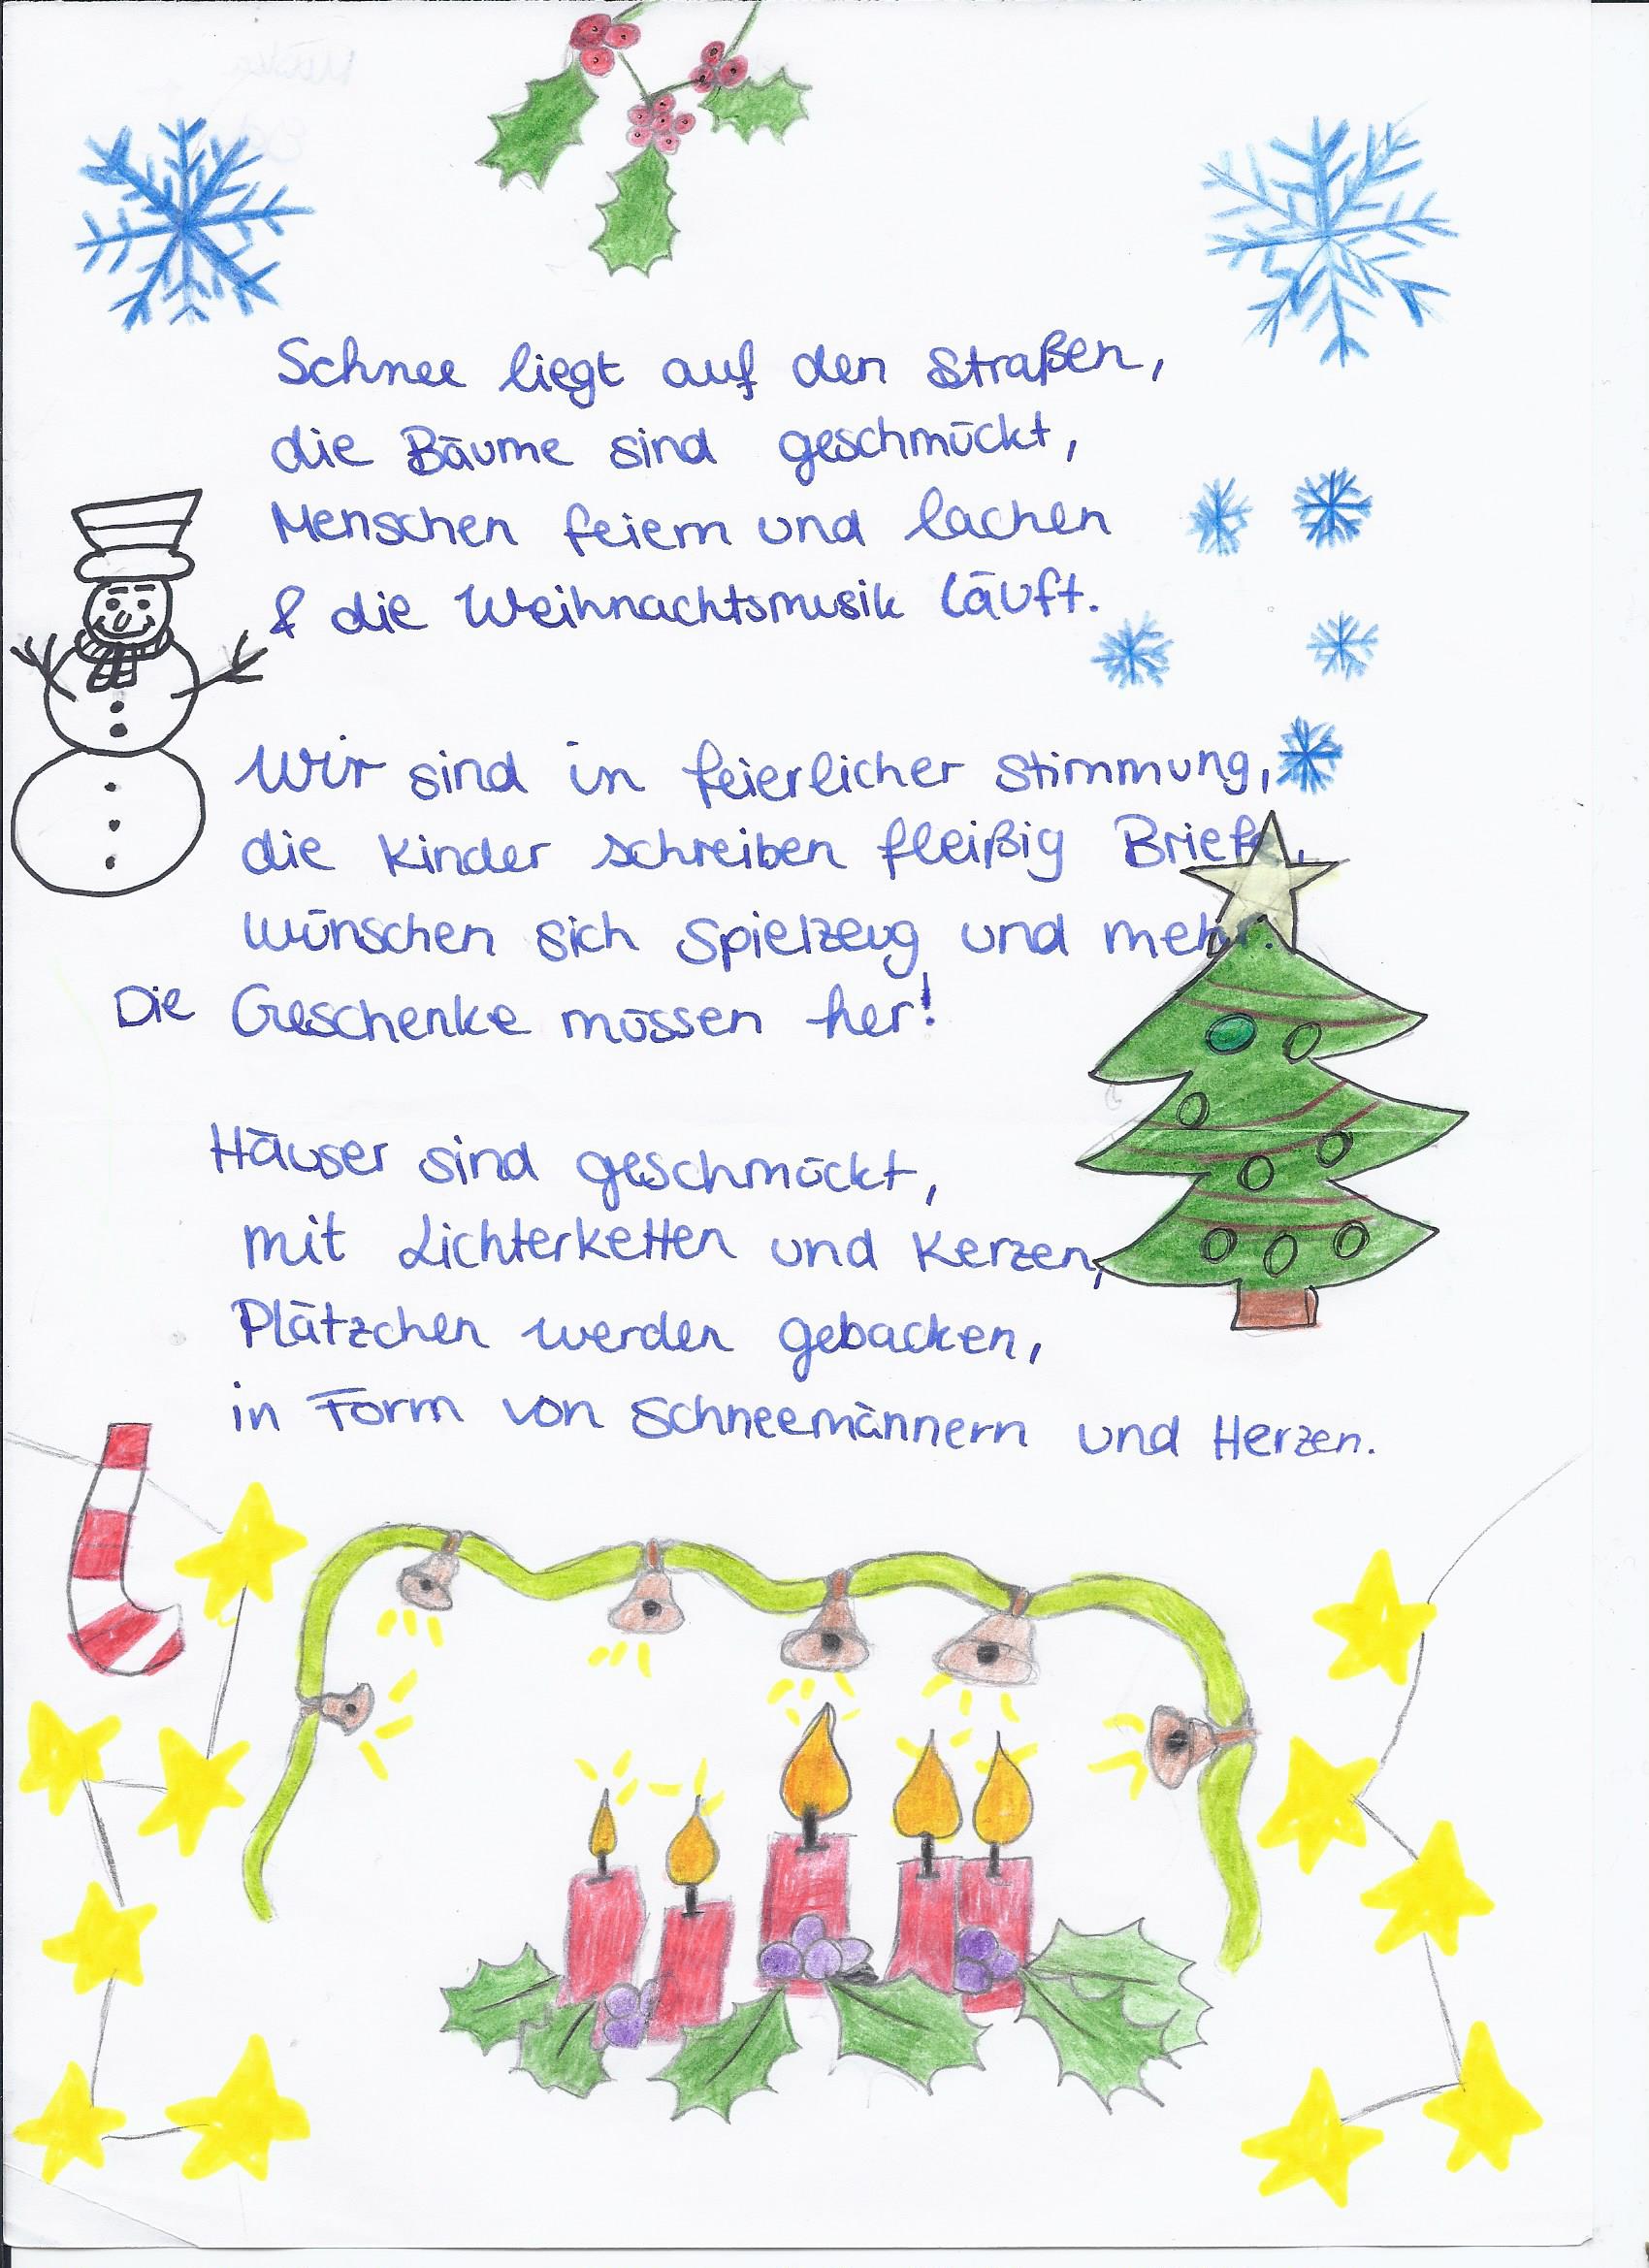 Schnee liegt auf den Straßen,
die Bäume sind geschmückt,
Menschen feiern und lachen
& die Weihnachtsmusik läuft.
Wir sind in feierlicher Stimmung,
die Kinder schreiben fleißig Briefe,
wünschen sich Spielzeug und mehr.
Die Geschenke müssen her!
Häuser sind geschmückt,
mit Lichterketten und Kerzen,
Plätzchen werden gebacken,
in Form von Schneemännern und Herzen.